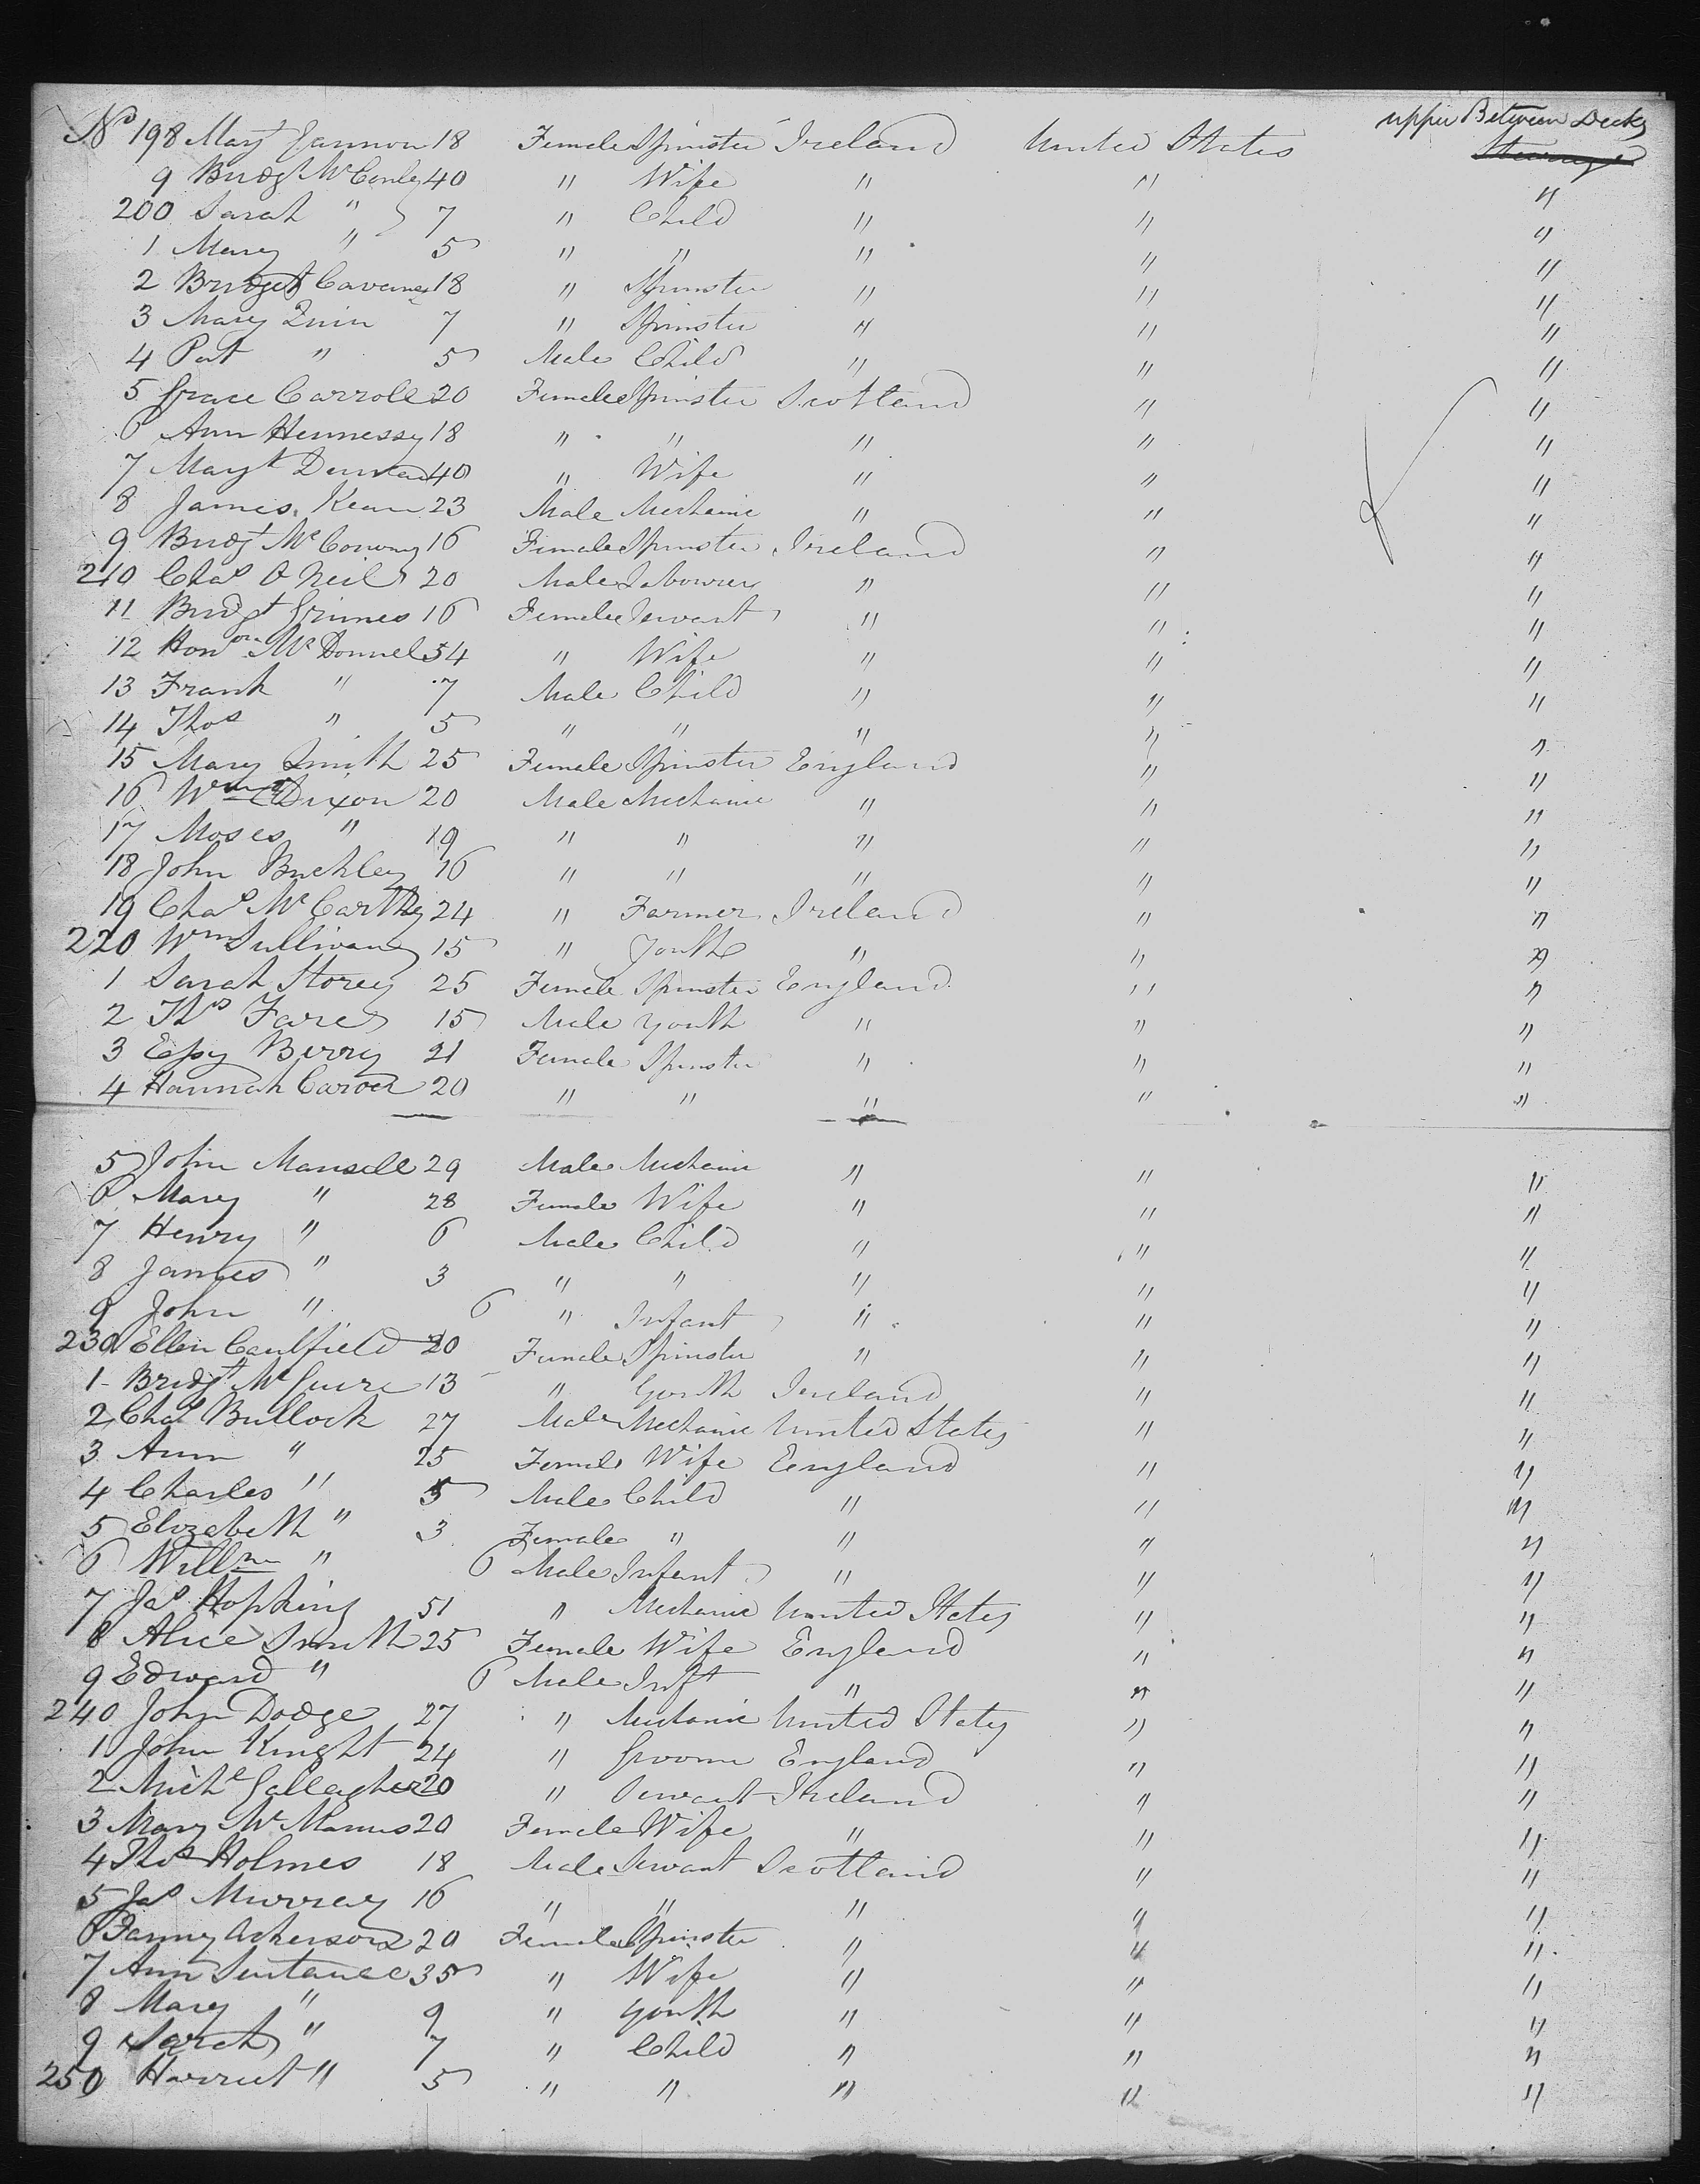 No 198 Mary Gannon 18 Female Spinster Ireland United States upper Between Decks Steerage
9 Bridgt McConley 40 " Wife " " "
200 Sarah " 7 " Child " " "
1 Mary " 5 " " " " "
2 Bridget Cavaney 18 " Spinster " " "
3 Mary Quin 7 " Spinster " " "
4 Pat " 5 Male Child " " "
5 Grace Carroll 20 Female Spinster Scotland " "
6 Ann Hennessy 18 " " " " "
7 Margt 40 " Wife " " "
8 James Kean 23 Male Mechanic " " "
9 Bridgt McConomy 16 Female Spinster Ireland " "
210 Chas O Neil 20 Male Labourer " " "
11 Bridgt Grimes 16 Female Servant " " "
12 Honora McDonnel 34 " Wife " " "
13 Frank " 7 Male Child " " "
14 Thos " 5 " " " " "
15 Mary Smith 25 Female Spinster England " "
16 Wm Dixon 20 Male Mechanic " " "
17 Moses " 19 " " " " "
18 John Buckley 16 " " " " "
19 Chas McCarthy 24 " Farmer Ireland " "
220 Wm Sullivan 15 " Youth " " "
1 Sarah Storey 25 Female Spinster England " "
2 Thos Fares 15 Male Youth " " "
3 Epy Berry 21 Female Spinster " " "
4 Hannah Carver 20 " " " " "
5 John Mansell 29 Male Mechanic " " "
6 Mary " 28 Female Wife " " "
7 Henry " 6 Male Child " " "
8 James " 3 " " " " "
9 John " 6 " Infant " " "
230 Ellen Caulfield 20 Female Spinster " " "
1 Bridgt McGuire 13 " Youth Ireland " "
2 Chas Bullock 27 Male Mechanic United States " "
3 Ann " 25 Female Wife England " "
4 Charles " 5 Male Child " " "
5 Elizabeth " 3 Female " " " "
6 Willm " 6 Male Infant " " "
7 Jas Hopkins 51 " Mechanic United States " "
8 Alice Smith 25 Female Wife England " "
9 Edward " 6 Male Inft " " "
240 John Dodge 27 " Mechanic United States " "
1 John Knight 24 " Groom England " "
2 Michl Gallagher 20 " Servant Ireland " "
3 Mary McManus 20 Female Wife " " "
4 Thos Holmes 18 Male Servant Scotland " "
5 Jas Murray 16 " " " " "
6 Fanny Acherson 20 Female Spinster " " "
7 Ann Sentance 35 " Wife " " "
8 Mary " 9 " Youth " " "
9 Sarah " 7 " Child " " "
250 Harriet " 5 " " " " "